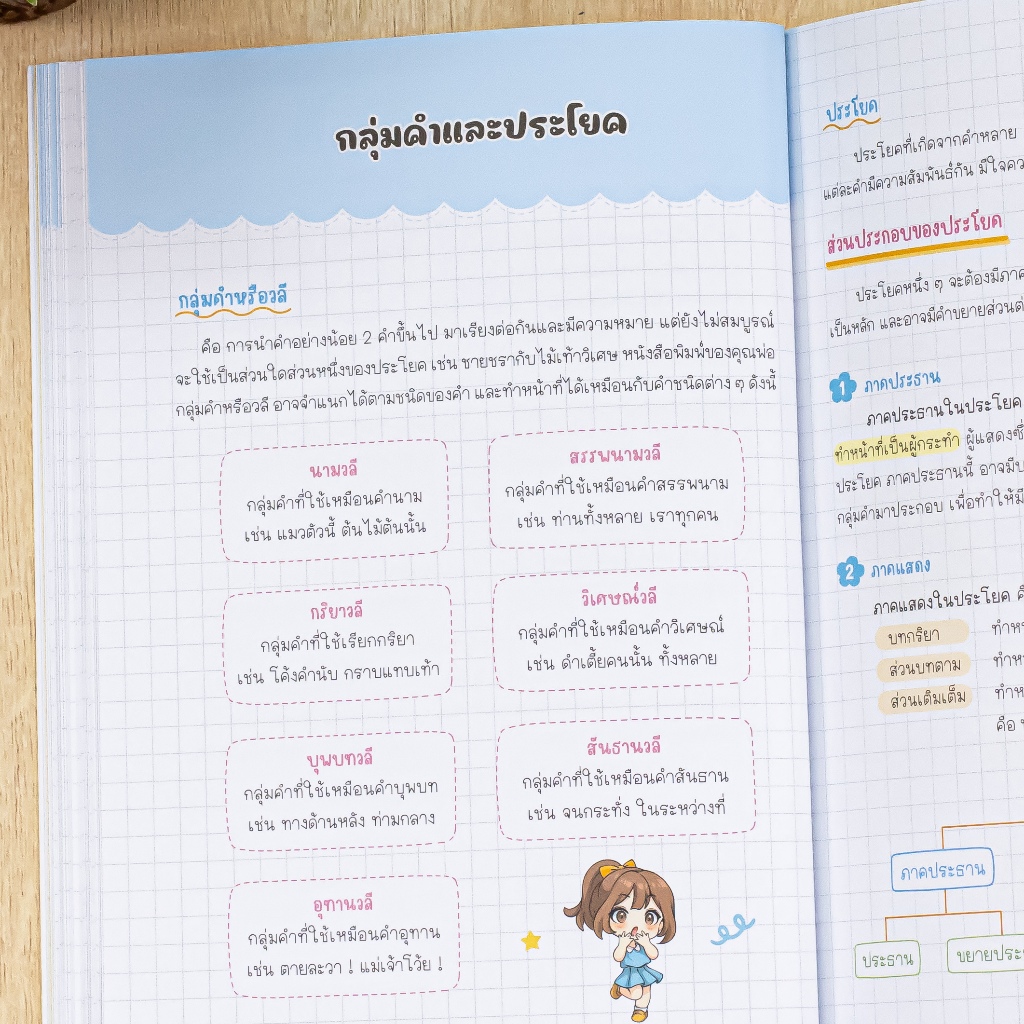 กลุ่มคำและประโยค
กลุ่มคำหรือวลี
คือ การนำคำอย่างน้อย 2 คำขึ้นไป มาเรียงต่อกันและมีความหมาย แต่ยังไม่สมบูรณ์
จะใช้เป็นส่วนใดส่วนหนึ่งของประโยค เช่น ชายชรากับไม้เท้าวิเศษ หนังสือพิมพ์ของคุณพ่อ
กลุ่มคำหรือวลี อาจจำแนกได้ตามชนิดของคำ และทำหน้าที่ได้เหมือนกับคำชนิดต่าง ๆ ดังนี้
นามวลี
กลุ่มคำที่ใช้เหมือนคำนาม
เช่น แมวตัวนี้ ต้นไม้ต้นนั้น
สรรพนามวลี
กลุ่มคำที่ใช้เหมือนคำสรรพนาม
เช่น ท่านทั้งหลาย เราทุกคน
กริยาวลี
กลุ่มคำที่ใช้เรียกกริยา
เช่น โค้งคำนับ กราบแทบเท้า
วิเศษณ์วลี
กลุ่มคำที่ใช้เหมือนคำวิเศษณ์
เช่น ดำเตี้ยคนนั้น ทั้งหลาย
บุพบทวลี
กลุ่มคำที่ใช้เหมือนคำบุพบท
เช่น ทางด้านหลัง ท่ามกลาง
สันธานวลี
กลุ่มคำที่ใช้เหมือนคำสันธาน
เช่น จนกระทั่ง ในระหว่างที่
อุทานวลี
กลุ่มคำที่ใช้เหมือนคำอุทาน
เช่น ตายละวา ! แม่เจ้าโว้ย !
ประโยค
ประโยคที่เกิดจากคำหลาย
แต่ละคำมีความสัมพันธ์กัน มีใจคว
ส่วนประกอบของประโยค
ประโยคหนึ่ง ๆ จะต้องมีภาค
เป็นหลัก และอาจมีคำขยายส่วนต่
1 ภาคประธาน
ภาคประธานในประโยค
ทำหน้าที่เป็นผู้กระทำ ผู้แสดงซึ่
ประโยค ภาคประธานนี้ อาจมีบ
กลุ่มคำมาประกอบ เพื่อทำให้มี
2 ภาคแสดง
ภาคแสดงในประโยค คื
บทกริยา ทำห
ส่วนบทตาม ทำห
ส่วนเติมเต็ม ทำห
คือ
ภาคประธาน
ประธาน
ขยายประ